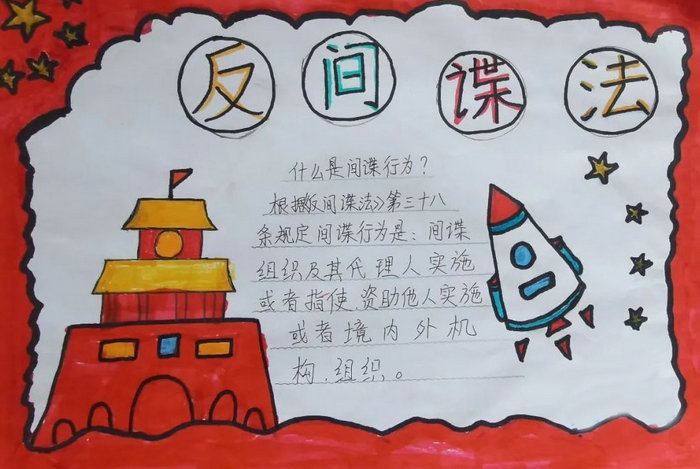 反间谍法
什么是间谍行为?
根据反间谍法》第三十八
条规定间谍行为是:间谍
组织及其代理人实施
或者指使、资助他人实施
或者境内外机
构、组织。